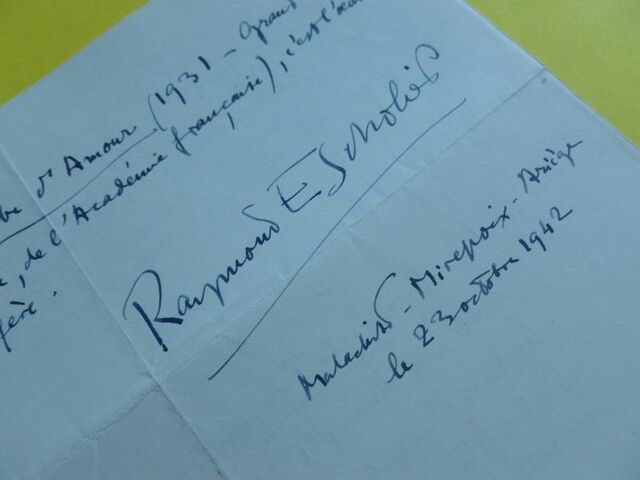 d'Amour (1931 - Grand
, de l'Académie française), c'est
Raymond Escholier
Maladid - Mirepoix - Ariège
le 23 octobre 1942